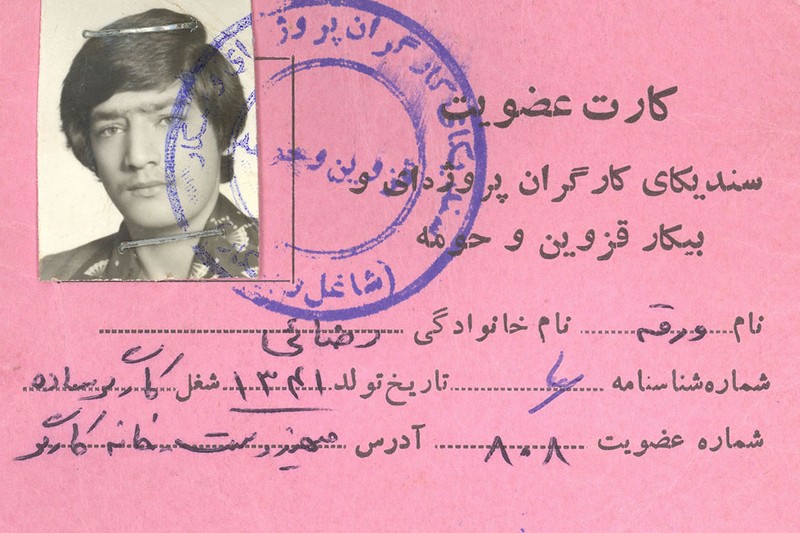 کارت عضویت
سندیکای کارگران پروژه‌ای و
بیکار قزوین و حومه
نام ورقه نام خانوادگی رضائی
شماره شناسنامه تاریخ تولد ۱۳۴۱ شغل کارگر ساده
شماره عضویت ۸۰۸ آدرس خانه کارگر
سندیکای کارگران پروژه‌ای و بیکار
قزوین و حومه
(شاغل